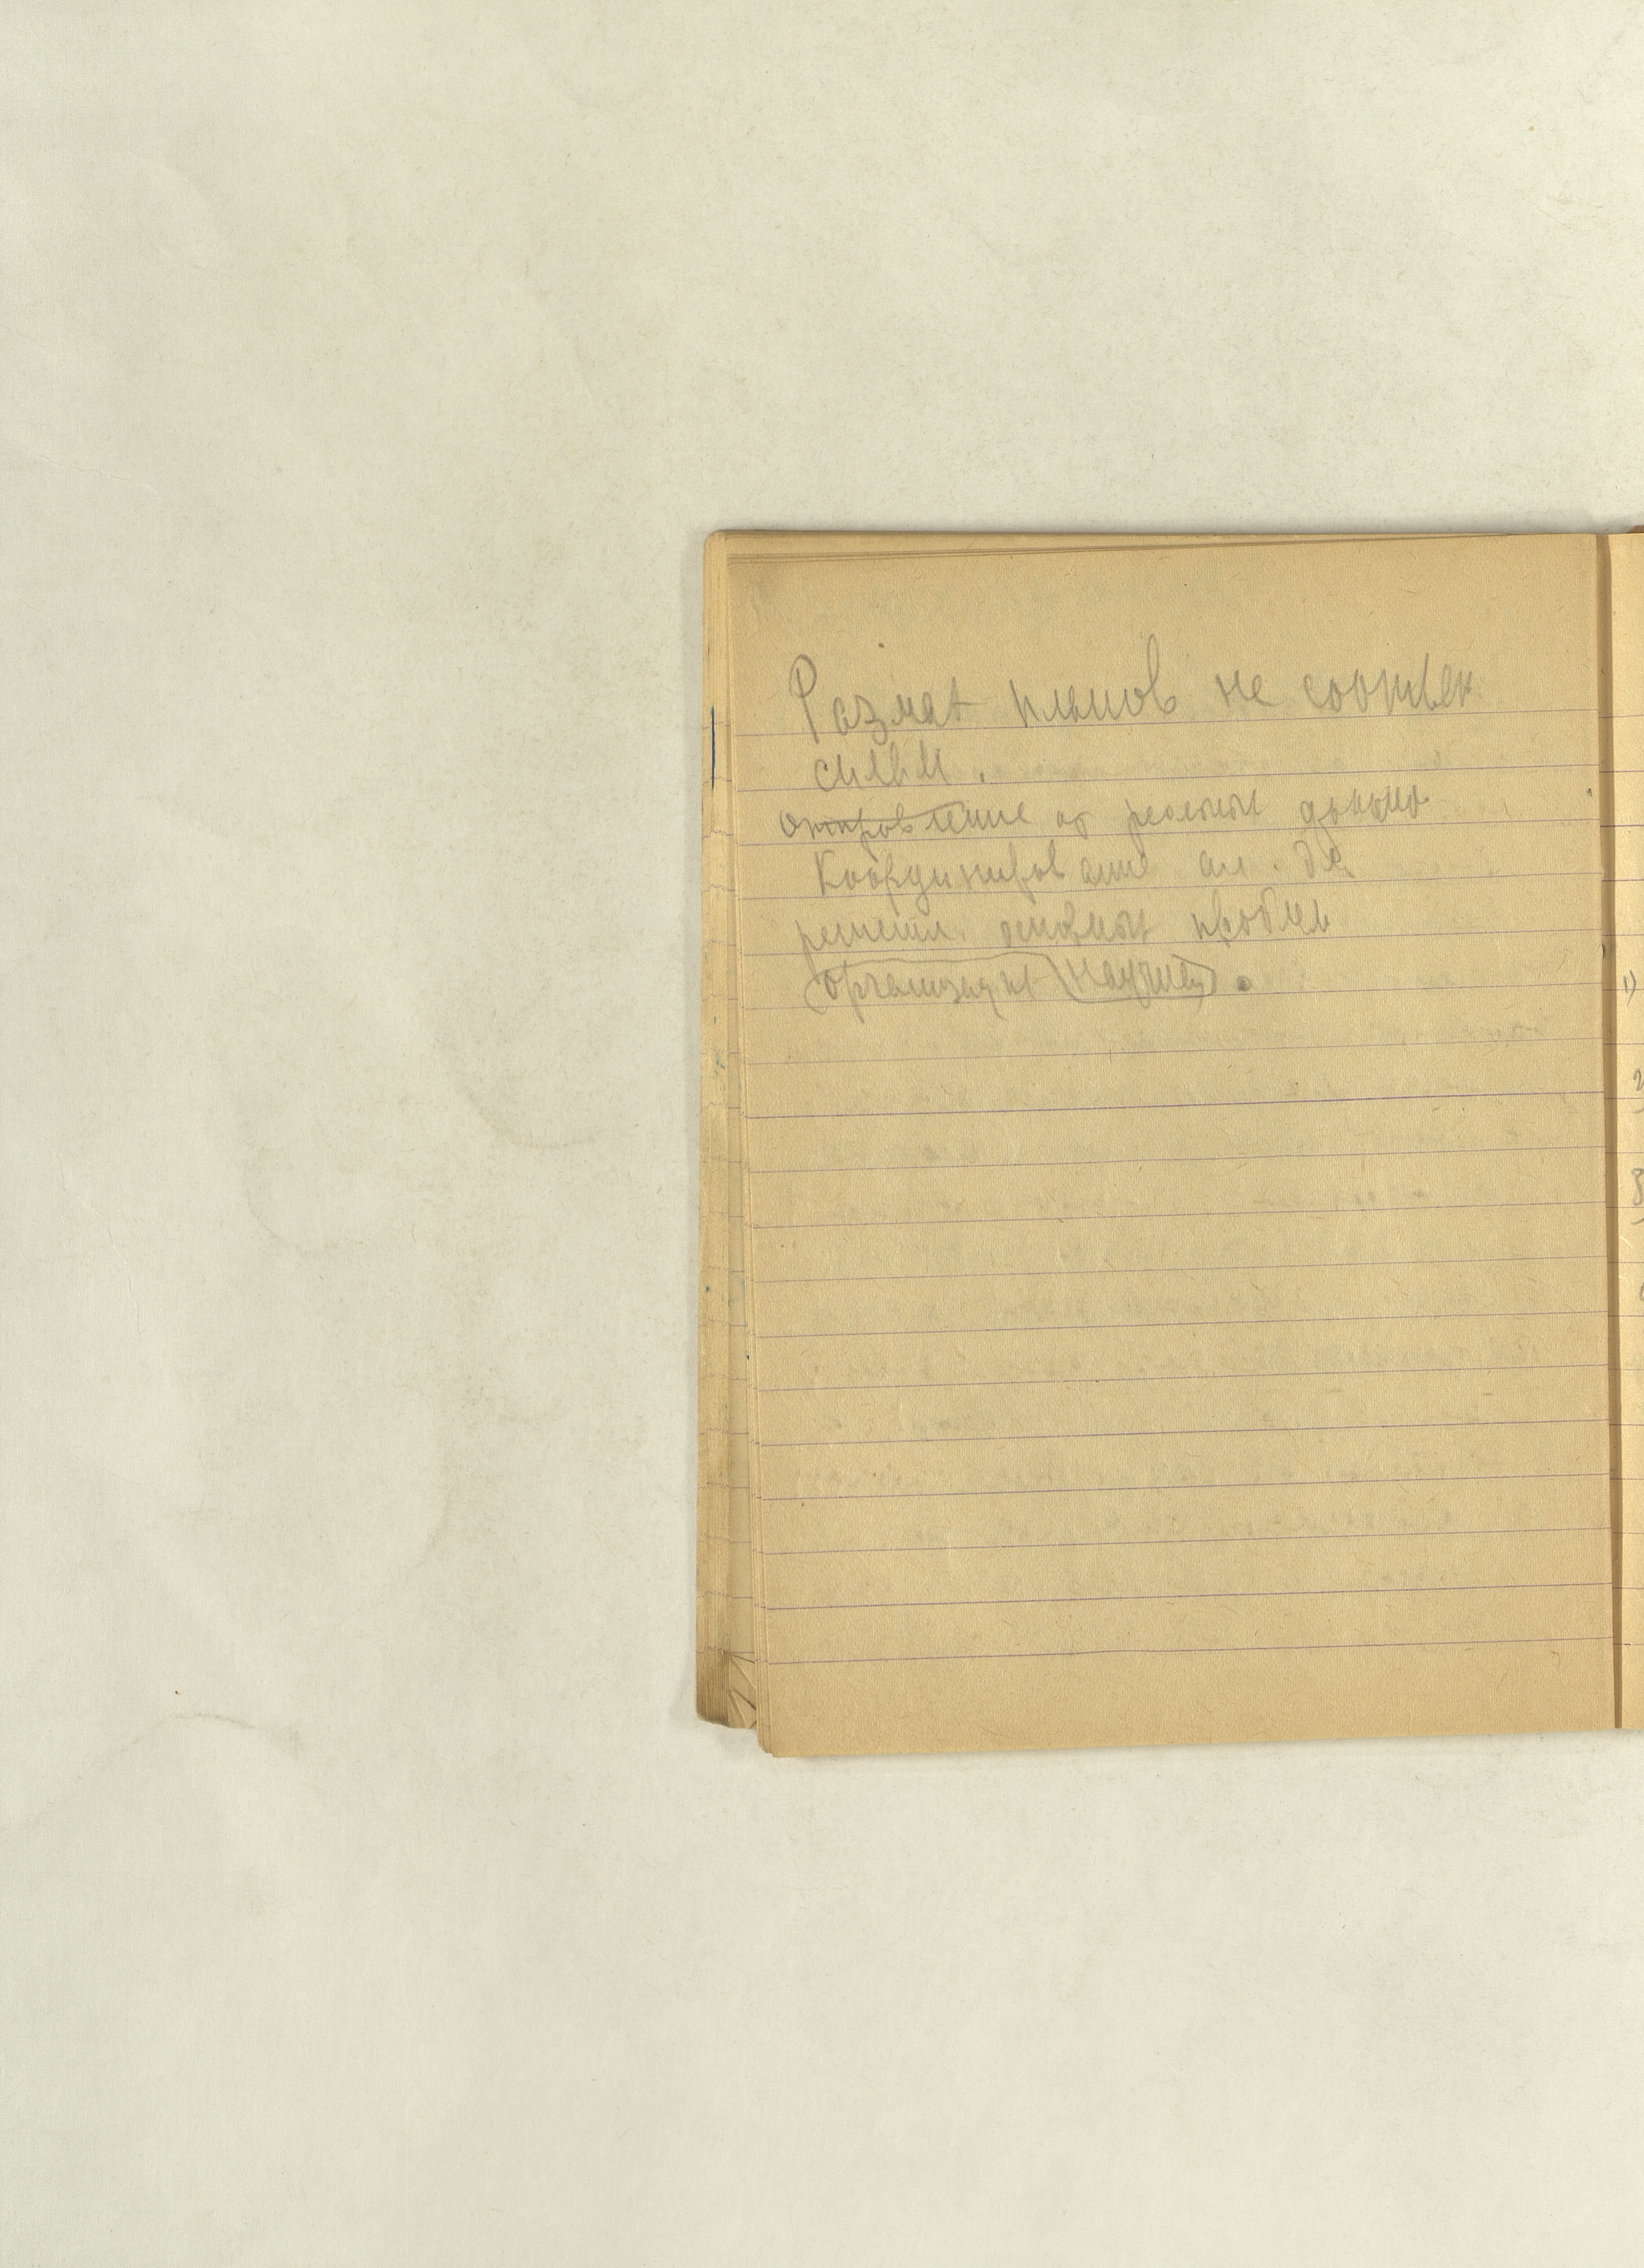 Размах планов не соответ
силам.
Отправление от реальных данных
Координирование ак. для
решени. основных проблем
организации научных.
1)
2
3